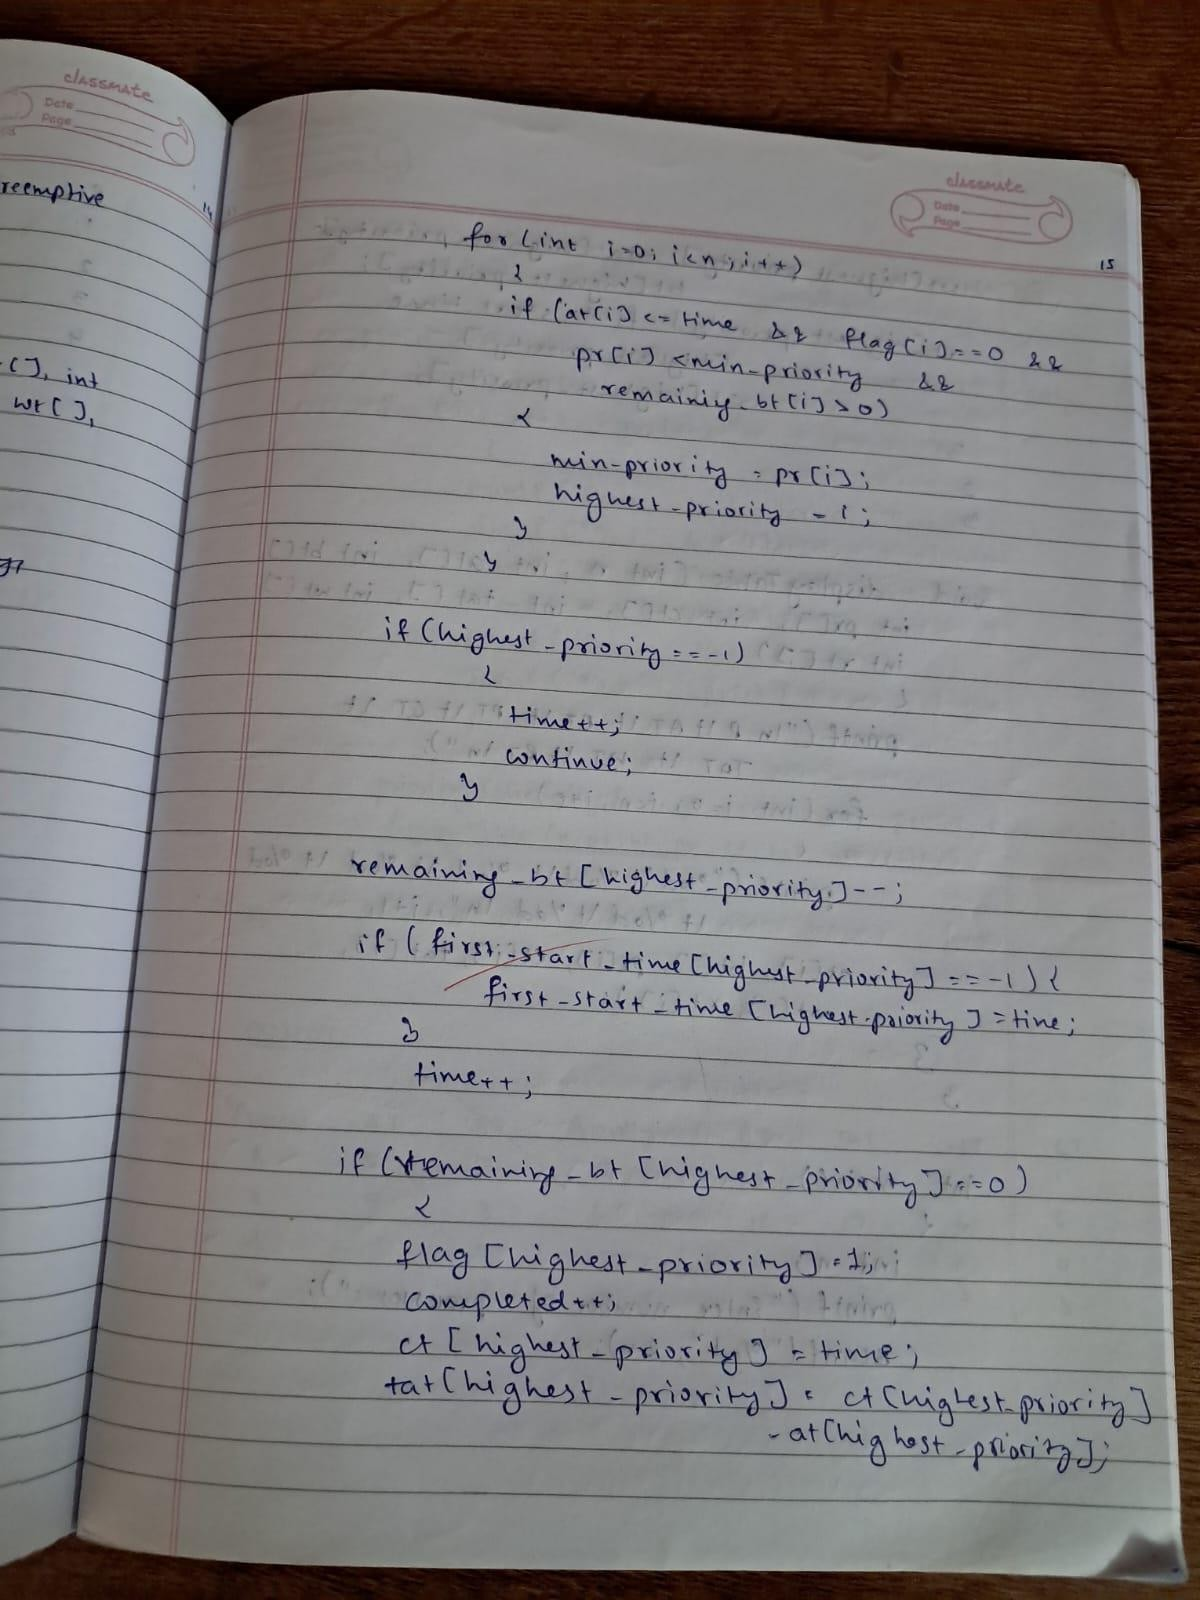 classmate
Date
Page
reemptive
14
[], int
wt[],
classmate
Date
Page
15
for (int i=0; i<n; i++)
{
if (at[i] <= time && flag[i]==0 &&
pr[i] <min-priority &&
remainiy-bt[i]>0)
{
min-priority = pr[i];
highest-priority = i;
}
}
if (highest-priority==-1)
{
time++;
continue;
}
remaining-bt[highest-priority]--;
if (first-start-time[highest-priority]==-1){
first-start-time[highest-priority]=time;
}
time++;
if (remaining-bt[highest-priority]==0)
{
flag[highest-priority]=1;
completed++;
ct[highest-priority]=time;
tat[highest-priority]= ct[highest-priority]
-at[highest-priority];